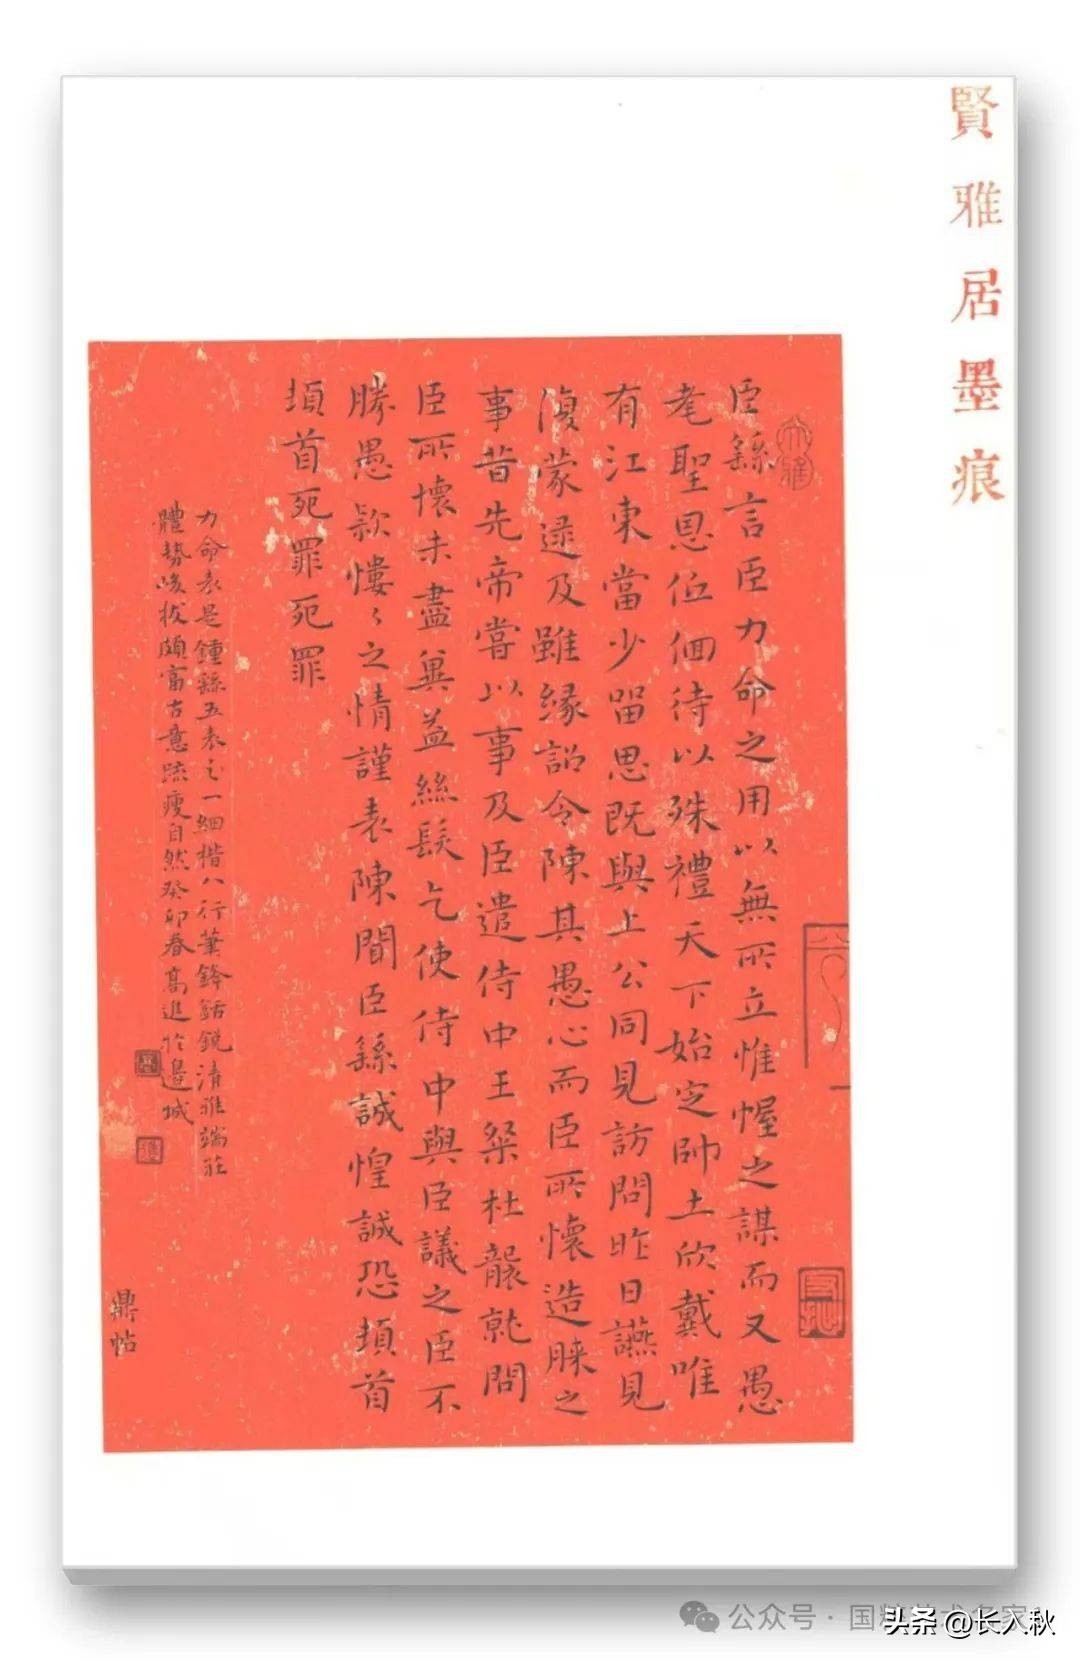 賢雅居墨痕
臣繇言臣力命之用以無所立惟幄之謀而又愚
耄聖恩伍佪待以殊禮天下始定帥土欣戴唯
有江東當少留思既與上公同見訪問昨日讌見
復蒙逮及雖緣詔令陳其愚心而臣所懷造膝之
事昔先帝嘗以事及臣遣侍中王粲杜襲就問
臣所懷未盡冀益絲髮乞使侍中與臣議之臣不
勝愚款慺〻之情謹表陳聞臣繇誠惶誠恐頓首
頓首死罪死罪
力命表是鍾繇五表之一細楷八行筆鋒銛銳清雅端莊
體勢峻拔頗富古意疏瘦自然癸卯春高進於邊城
鼎帖
公众号·国粹艺术名家
头条@长入秋